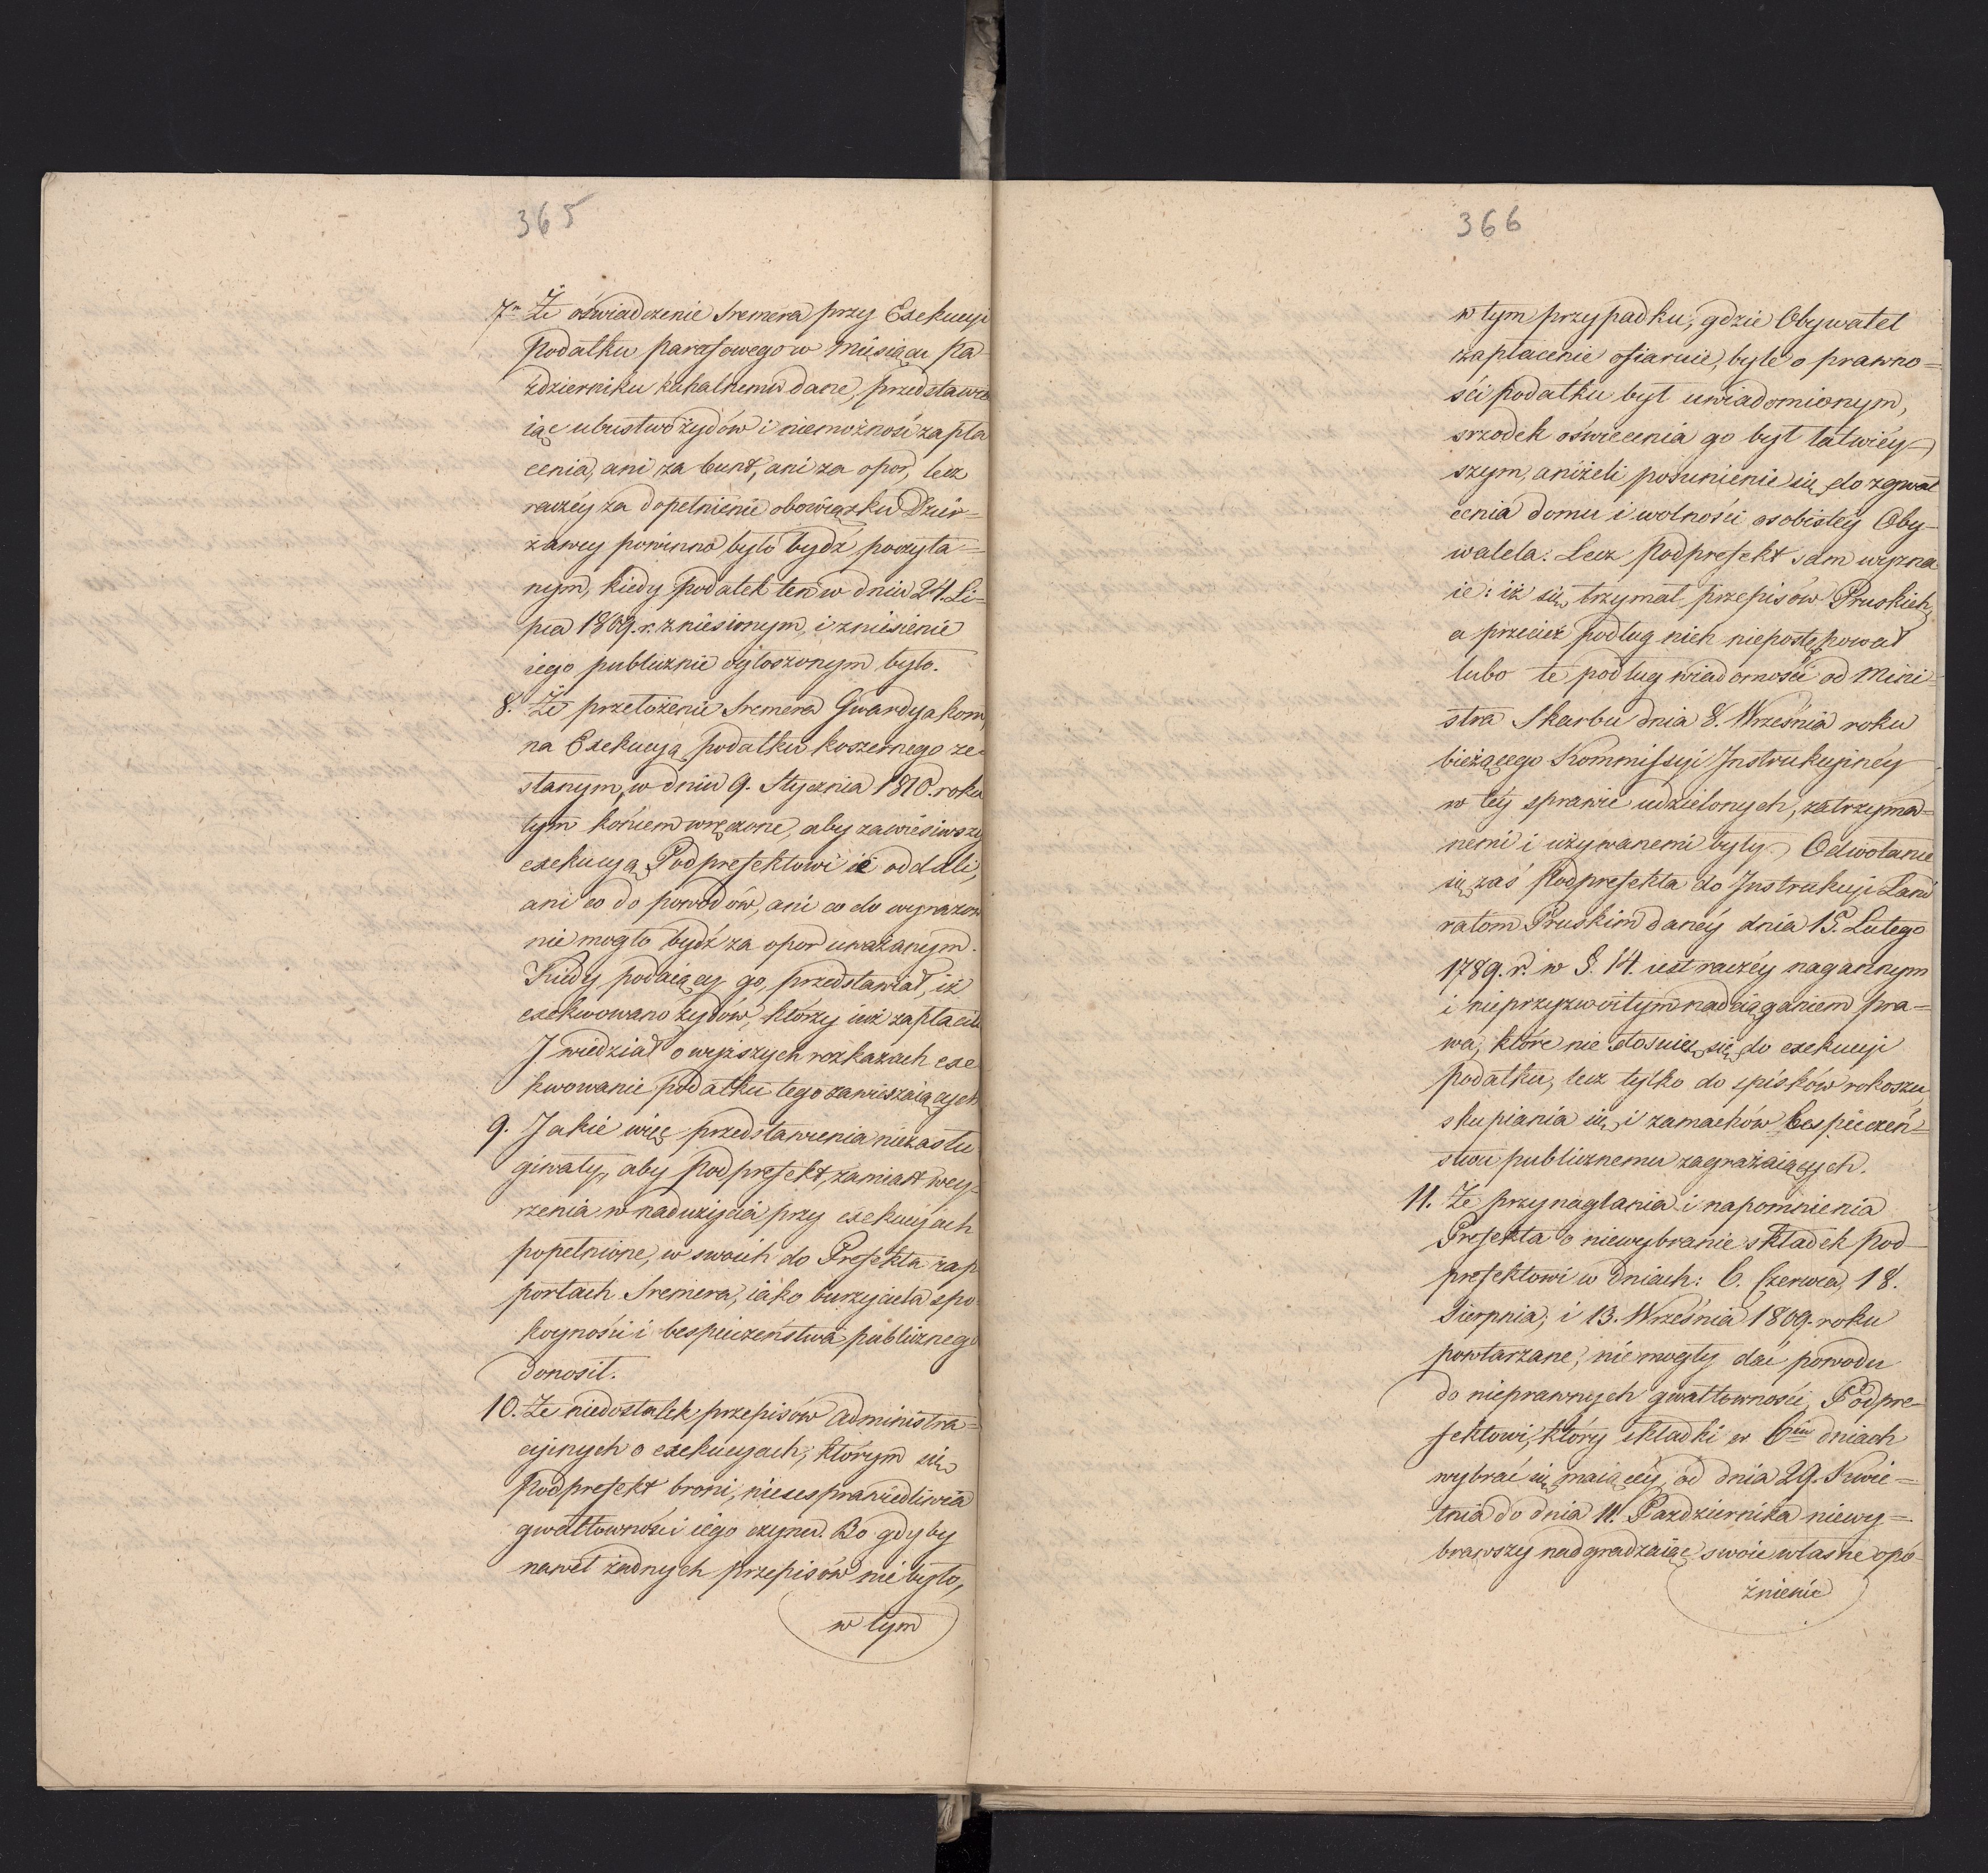 365
7º Że oświadczenie Sremera przy Exekucyi
Podatku parafowego w Miesiącu Pa-
ździerniku kahalnemu dane, przedstawia
iąc ubustwo żydów i niemożność zapła
cenia, ani za bunt, ani za opor, lecz
raczéy za dopełnienie obowiązku Dzier=
żawcy powinno było bydź poczyta=
nym, kiedy podatek ten w dniu 24. Li=
pca 1809. r. zniesionym, i zniesienie
iego publicznie ogłoszonym było.
8. Że przełożenie Sremera Gwardyakom,
na Exekucyą podatku koszernego ze-
słanym, w dniu 9. Stycznia 1810. roku
tym końcem wręczone, aby zawiesiwszy
exekucyą Podprefektowi ie oddali,
ani co do powodów, ani co do wyrazow
nie mogło bydź za opor uważanym.
Kiedy podaiący go, przedstawiał, iż
exekwowano żydów, którzy iuż zapłacili
J wiedział o wyższych rozkazach exe
kwowanie podatku tego zawieszaiących
9. Jakie więc przedstawienia niezasłu
giwały, aby Podprefekt, zamiast wey-
rzenia w nadużycia przy exekucyach
popełnione, w swoich do Prefekta rap
portach Sremera, iako burzyciela spo-
koyności i bespieczeństwa publicznego
donosił.
10. Że niedostatek przepisów administra=
cyinych o exekucyach, którym się
Podprefekt broni, nieusprawiedliwia
gwałtowności iego czynu. Bo gdyby
nawet żadnych przepisów nie było,
w tym
366
w tym przypadku, gdzie Obywatel
zapłacenie ofiaruie, byle o prawno=
ści podatku był uwiadomionym,
srzodek oświecenia go był łatwiéy-
szym, aniżeli posunienie się do zgwał
cenia domu i wolności osobistey Oby-
watela. Lecz Podprefekt sam wyzna
ie: iż się trzymał przepisów Pruskich,
a przecież podług nich niepostępował
lubo te podług wiadomości od Mini=
stra Skarbu dnia 8. Września roku
bieżącego Kommissyi Instrukcyinéy
w téy sprawie udzielonych, zatrzyma=
nemi i używanemi były. Odwołanie
się zaś Podprefekta do Instrukcyi Land
ratom Pruskim danéy dnia 15. Lutego
1789. r. w §. 14. iest raczéy nagannym
i nieprzyzwoitym nadciąganiem pra=
wa, które nie stosuie się do exekucyi
podatku, lecz tylko do spisków rokoszu,
skupiania się, i zamachów bespieczeń=
stwu publicznemu zagrażaiących.
11. Że przynaglania i napomnienia
Prefekta o niewybranie składek Pod-
prefektowi w dniach: 6. Czerwca, 18.
Sierpnia, i 13. Września 1809. roku
powtarzane, nie mogły dać powodu
do nieprawnych gwałtowności, Podpre-
fektowi, który składki w 6ciu dniach
wybrać się maiącéy, od dnia 29. Kwie=
tnia do dnia 11. Pazdziernika niewy=
brawszy nadgradzaiąc swoie własne opó-
żnienie